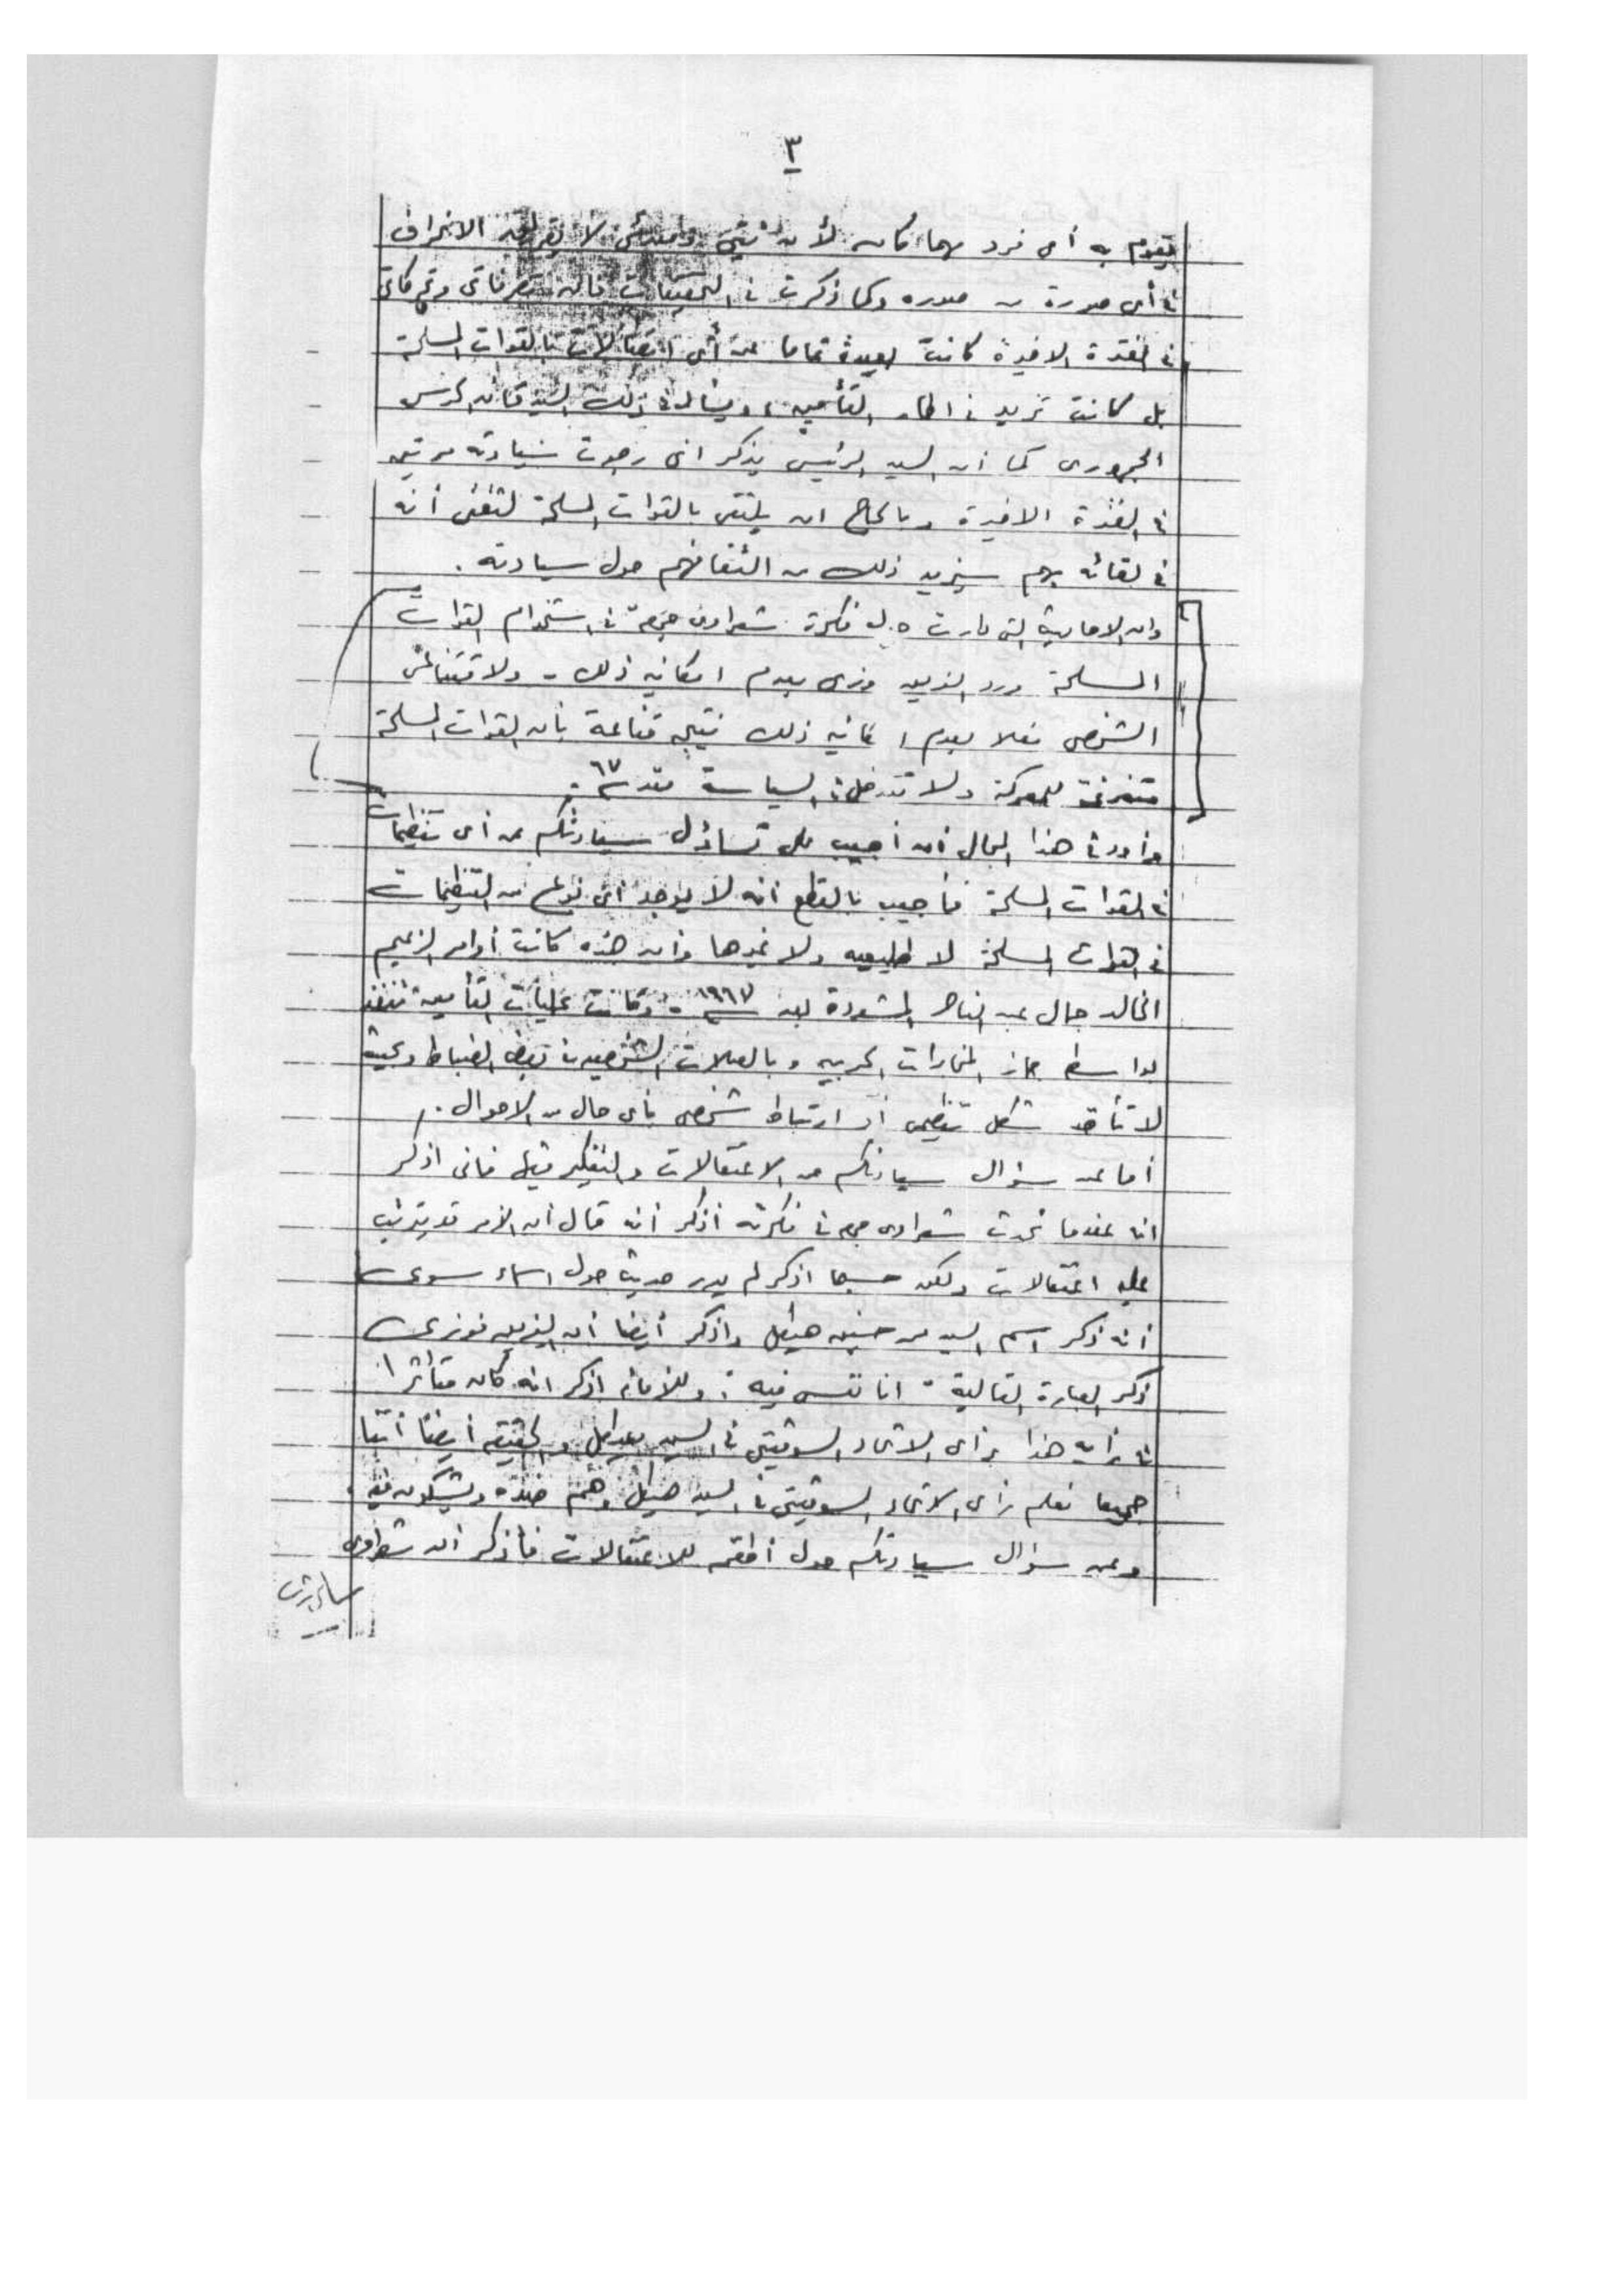 ٣
يقوم به أى فرد مهما كان لأن نيتى لا الانحراف
فى أى صورة من صوره وكما ذكرت فى التحقيقات فان تصرفاتى وتحركاتى
فى الفترة الاخيرة كانت بعيدة تماما عن أى اتصالات بالقوات المسلحة
بل كانت تزيد فى اطار التأمين، ويسأل فى ذلك السيد قائد الحرس
الجمهورى كما أن السيد الرئيس يذكر انى رجوت سيادته مرتين
فى الفترة الاخيرة وبالحاح ان يلتقى بالقوات المسلحة لثقتى أنه
فى لقائه بهم سيزيد ذلك من التفافهم حول سيادته .
وان الاحاديث التى دارت فكرة شعراوى جمعة فى استخدام القوات
المسلحة ورد الفريق فوزى بعدم امكانية ذلك - ولاقتناعى
الشخصى فعلا بعدم امكانية ذلك نتيجة قناعة بأن القوات المسلحة
متفرغة للمعركة ولا تتدخل فى السياسة منذ سنة ٦٧ .
وأود فى هذا المجال أن أجيب على تساؤل سيادتكم عن أى تنظيمات
فى القوات المسلحة فأجيب بالقطع انه لا يوجد أى نوع من التنظيمات
فى القوات المسلحة لا طليعيه ولا غيرها وأن هذه كانت أوامر الزعيم
الخالد جمال عبد الناصر المشددة بعد سنة ١٩٦٧ - وكانت عمليات التأمين تنفذ
بواسطة جهاز المخابرات الحربيه وبالصلات الشخصية فى بعض الضباط وبحيث
لا تأخذ شكل تنظيمى أو ارتباط شخصى بأى حال من الاحوال .
أما عن سؤال سيادتكم عن الاعتقالات والتفكير فيها فانى اذكر
انه عندما تحدث شعراوى جمعه فى فكرته أذكر أنه قال أن الأمر قد يترتب
عليه اعتقالات ولكن حسبما اذكر لم يدر حديث حول اسماء سوى
أنه ذكر اسم السيد محمد حسنين هيكل واذكر أيضا أن الفريق فوزى
ذكر العبارة التالية " انا نفسى فيه " وللأمانه اذكر انه كان متأثرا
فى رأيه هذا برأى الاتحاد السوفيتى فى السيد هيكل والحقيقه أيضا أننا
جميعا نعلم رأى الاتحاد السوفيتى فى السيد هيكل وهم ضده ويشكون فيه .
وعن سؤال سيادتكم حول أطقم للاعتقالات فأذكر أن شعراوى
سامى شرف